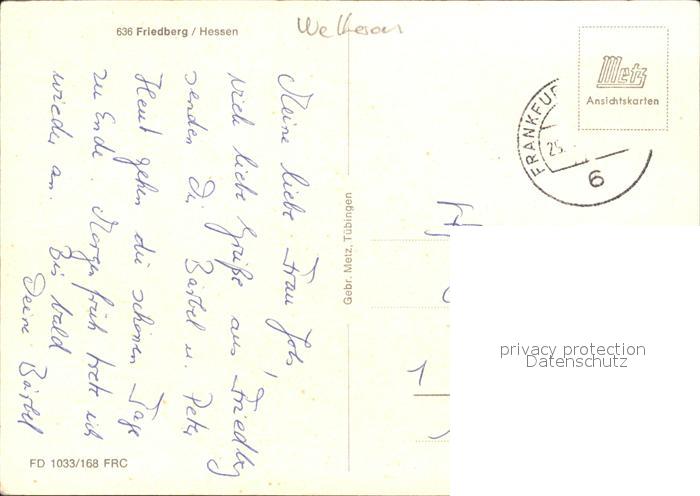 636 Friedberg / Hessen
Metz
Ansichtskarten
FRANKFU
25.
6
Meine liebe Frau
viele liebe Grüße aus Friedberg
senden Dir Bärbel u. Peter
Heut gehen die schönen Tage
zu Ende. Morgen früh trete ich
wieder an. Bis bald
Deine Bärbel
Gebr. Metz, Tübingen
1
privacy protection
Datenschutz
FD 1033/168 FRC